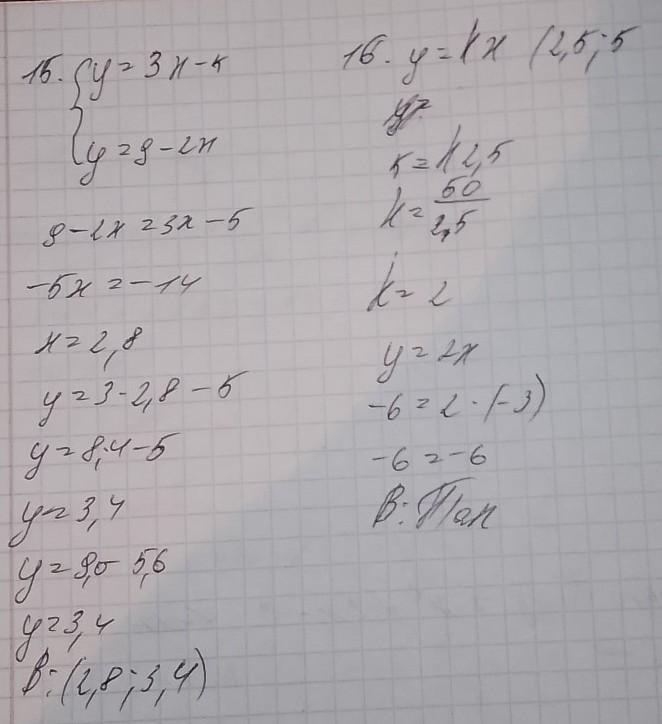 15. { y = 3x - 5
y = 9 - 2x
9 - 2x = 3x - 5
-5x = -14
x = 2,8
y = 3 · 2,8 - 5
y = 8,4 - 5
y = 3,4
y = 9,0 - 5,6
y = 3,4
В: (2,8; 3,4)
16. y = kx (2,5; 5
5 = k 2,5
k = 50/2,5
k = 2
y = 2x
-6 = 2 · (-3)
-6 = -6
В: Так